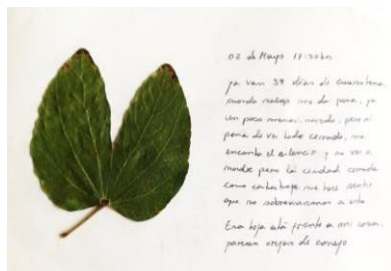 02 de Mayo 17:30hrs
ya van 39 días de cuarentena
cuando salgo me da pena, ya
un poco menos miedo, pero si
pena de ver todo cerrado, me
encanta el silencio y no ver a
nadie pero la ciudad cerrada
como caja me hace sentir
que no sobreviviremos a esto
Esa hoja está frente a mi casa,
parecen orejas de conejo